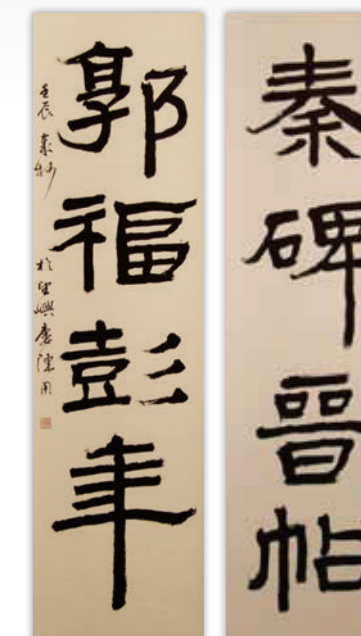 秦碑晉帖
郭福彭年
壬辰